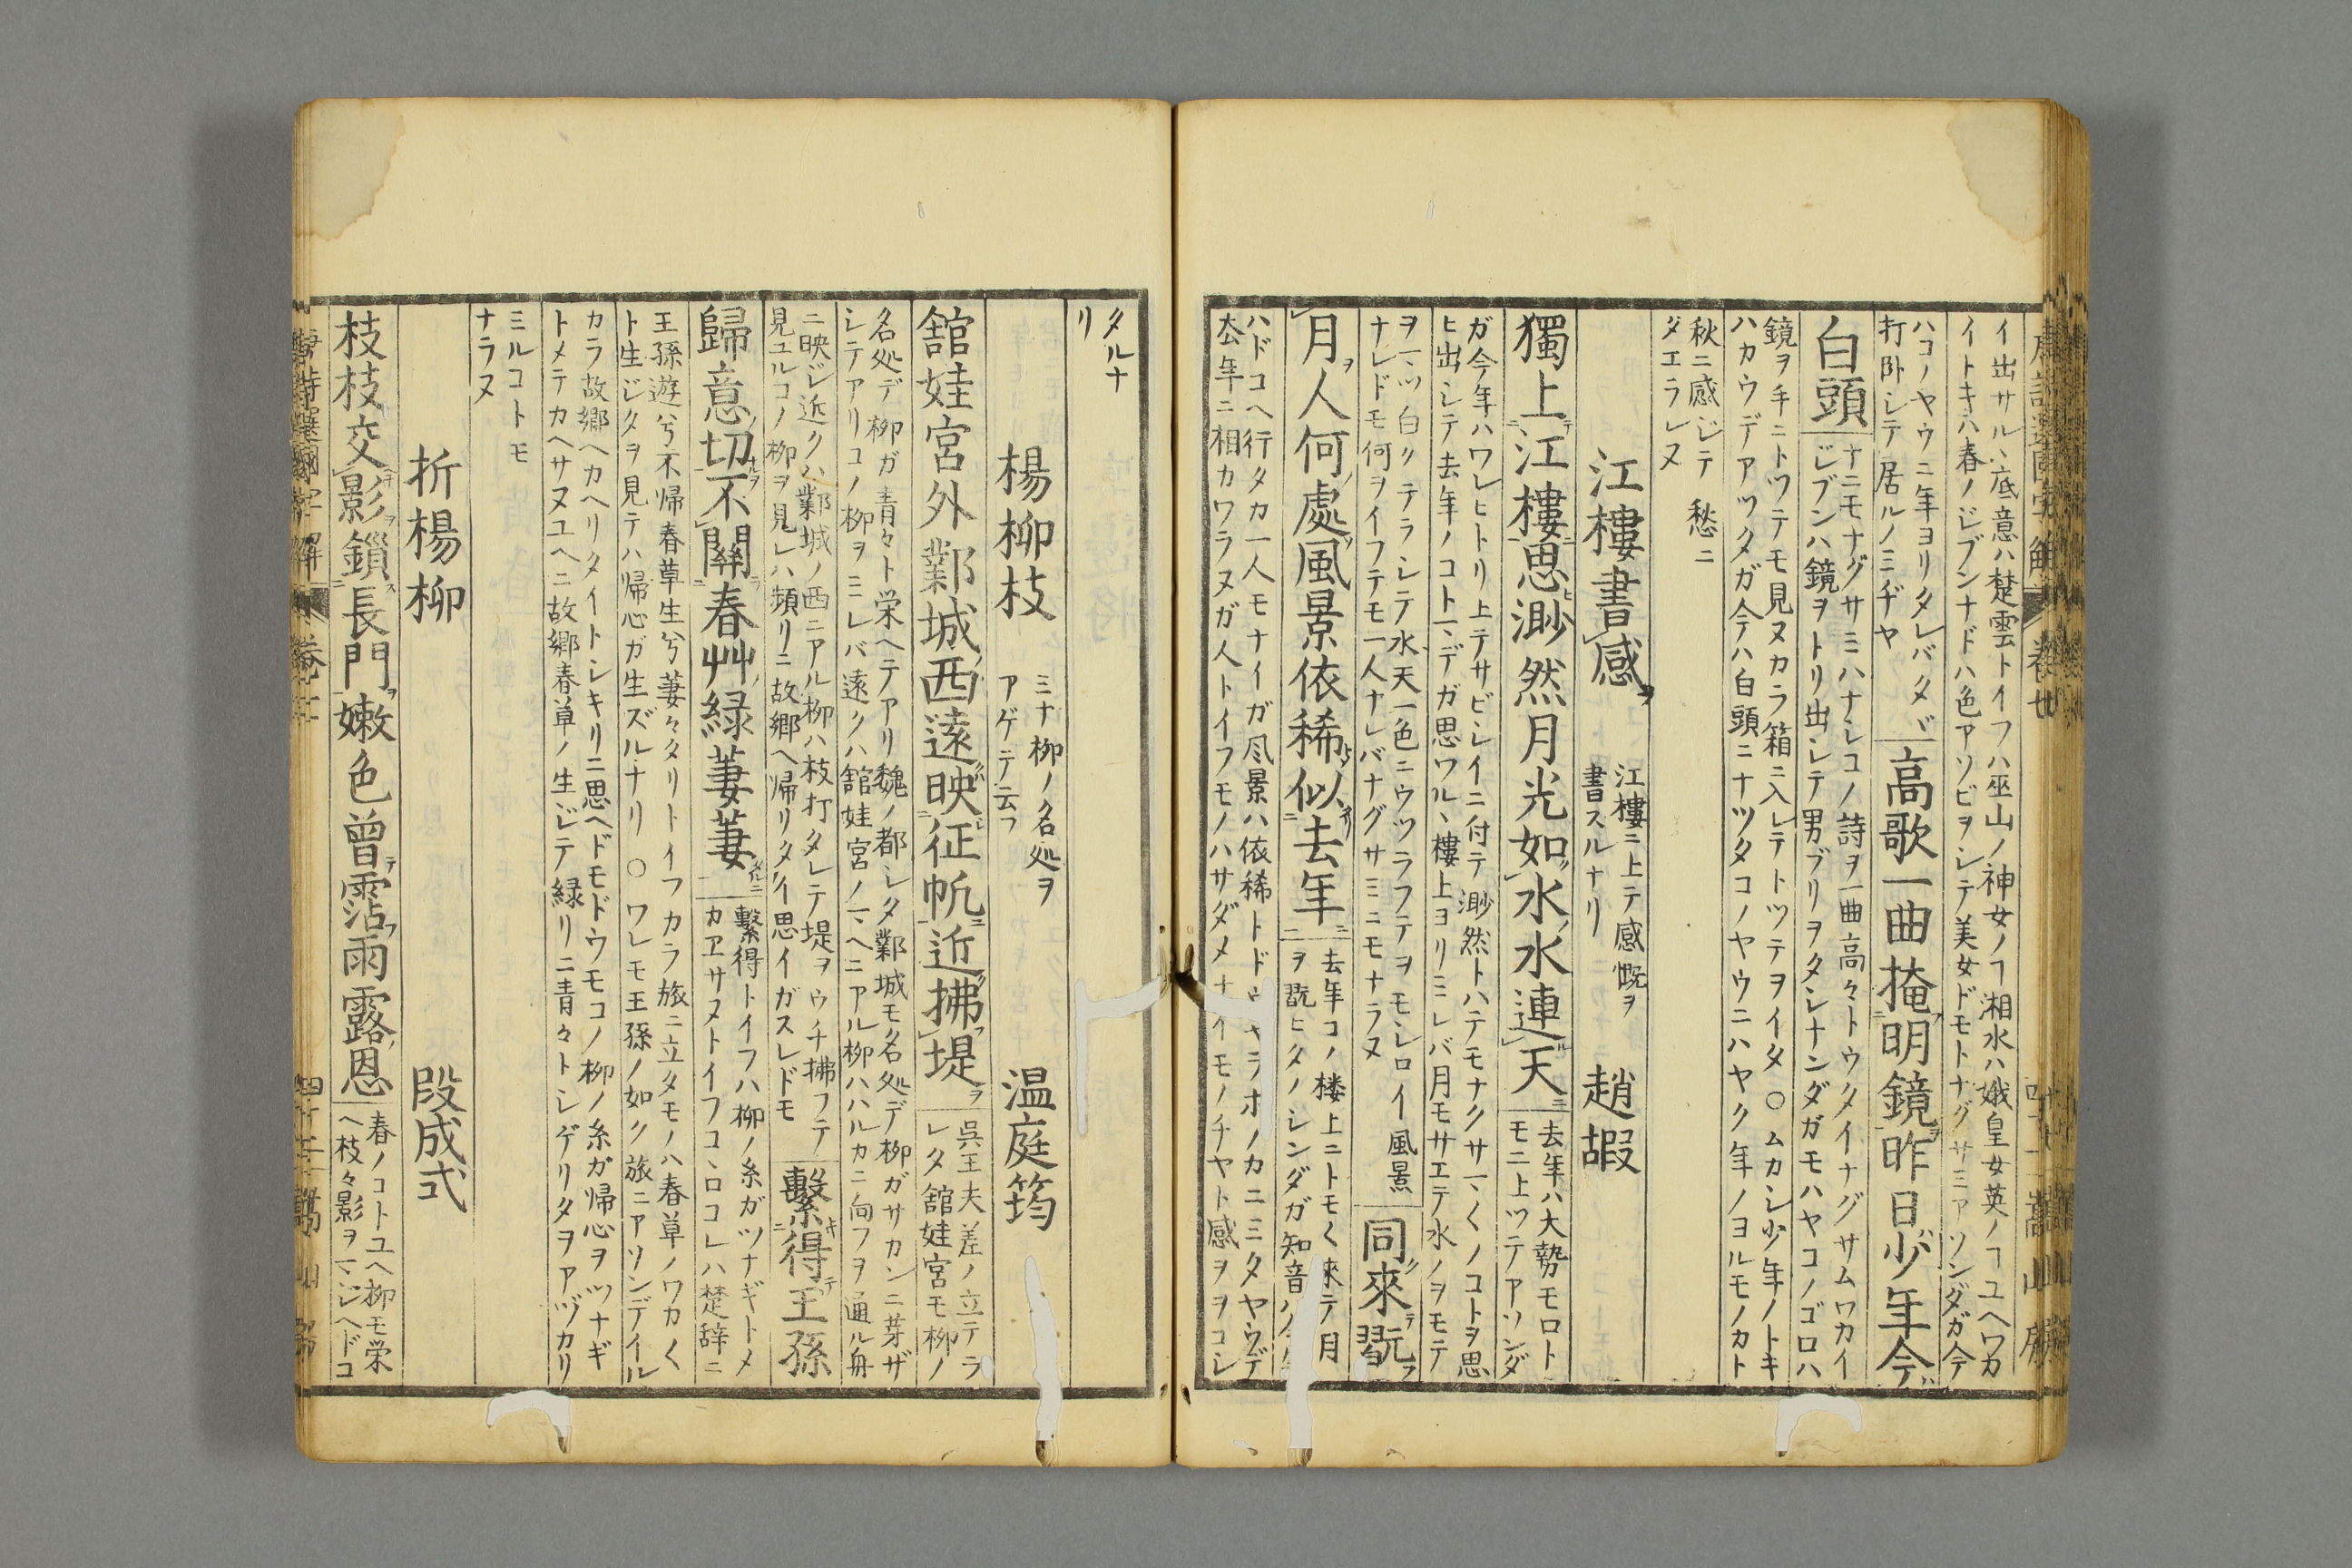 イ出サル、底意ハ楚雲トイフハ巫山ノ神女ノヿ湘水ハ娥皇女英ノヿユヘワカ
イトキハ春ノジブンナドハ色アソビヲシテ美女ドモトナグサミアソンダガ今
ハコノヤウニ年ヨリタレバタヾ
打臥シテ居ルノミヂヤ
高歌一曲掩明鏡昨日少年今
白頭
ナニモナグサミハナシコノ詩ヲ一曲高々トウタイナグサムワカイ
ジブンハ鏡ヲトリ出シテ男ブリヲタシナンダガモハヤコノゴロハ
鏡ヲ手ニトツテモ見ヌカラ箱ニ入レテトツテヲイタ○ムカシ少年ノトキ
ハカウデアツタガ今ハ白頭ニナツタコノヤウニハヤク年ノヨルモノカト
秋ニ感ジテ愁ニ
タエラレヌ
江樓書感
江樓ニ上テ感慨ヲ
書スルナリ
趙嘏
獨上江樓思渺然月光如水水連天
去年ハ大勢モロト
モニ上ツテアソンダ
ガ今年ハワレヒトリ上テサビシイニ付テ渺然トハテモナクサマ〱ノコトヲ思
ヒ出シテ去年ノコトマデガ思ワル、樓上ヨリミレバ月モサエテ水ノヲモテ
ヲマツ白クテラシテ水天一色ニウツラフテヲモシロイ風景
ナレドモ何ヲイフテモ一人ナレバナグサミニモナラヌ
同來翫
月人何處風景依稀似去年
去年コノ楼上ニトモ〱來テ月
ヲ翫ヒタノシンダガ知音
ハドコヘ行タカ一人モナイガ風景ハ依稀トドウヤラホノカニミタヤウデ
去年ニ相カワラヌガ人トイフモノハサダメナイモノヂヤト感ヲヲコシ
タルナ
リ
楊柳枝
ミナ柳ノ名処ヲ
アゲテ云フ
温庭筠
舘娃宮外鄴城西遠映征帆近拂堤
呉王夫差ノ立テラ
レタ舘娃宮モ柳ノ
名処デ柳ガ青々ト栄ヘテアリ魏ノ都シタ鄴城モ名処デ柳ガサカンニ芽ザ
シテアリコノ柳ヲミレバ遠クハ舘娃宮ノマヘニアル柳ハハルカニ向フヲ通ル舟
ニ映ジ近クハ鄴城ノ西ニアル柳ハ枝打タレテ堤ヲウチ拂フテ
見ユルコノ柳ヲ見レハ頻リニ故郷ヘ帰リタイ思イガスレドモ
繫得王孫
歸意切不關春艸緑萋萋
繫得トイフハ柳ノ糸ガツナギトメ
カヱサヌトイフコ、ロコレハ楚辞ニ
王孫遊兮不帰春草生兮萋々タリトイフカラ旅ニ立タモノハ春草ノワカ〱
ト生ジタヲ見テハ帰心ガ生ズルナリ○ワレモ王孫ノ如ク旅ニアソンデイル
カラ故郷ヘカヘリタイトシキリニ思ヘドモドウモコノ柳ノ糸ガ帰心ヲツナギ
トメテカヘサヌユヘニ故郷春草ノ生ジテ緑リニ青々トシゲリタヲアヅカリ
ミルコトモ
ナラヌ
折楊柳
段成式
枝枝交影鎖長門嫩色曾霑雨露恩
春ノコトユヘ柳モ栄
ヘ枝々影ヲマジヘドコ